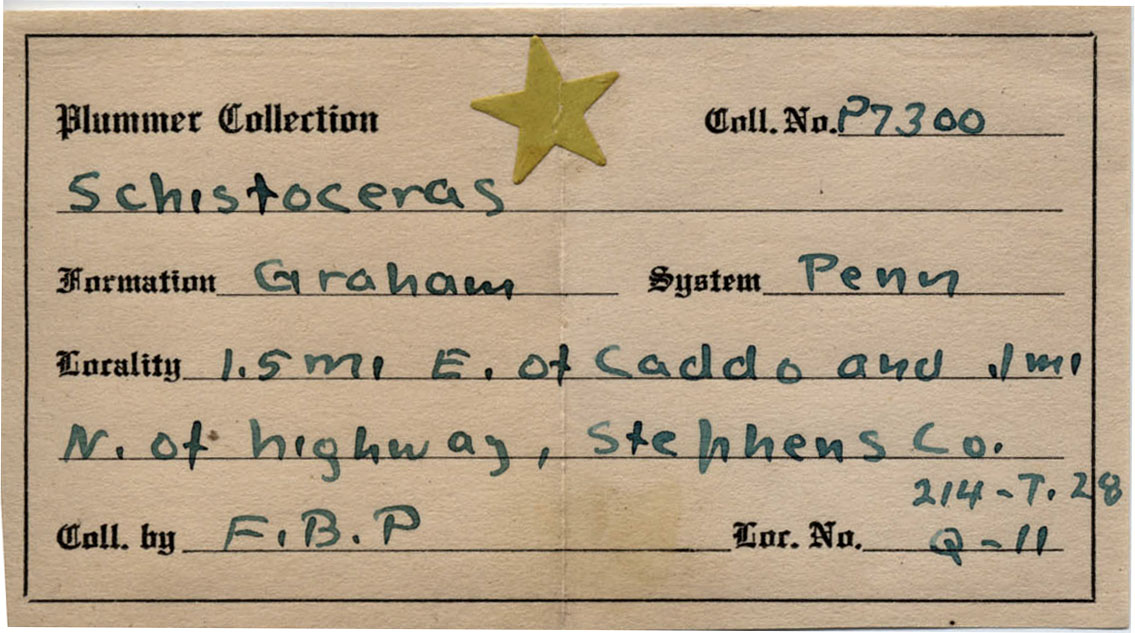 Plummer Collection Coll. No. P7300
Schistoceras
Formation Graham System Penn
Locality 1.5 mi E. of Caddo and .1 mi
N. of highway, Stephens Co.
214-T.28
Coll. by F.B.P Loc. No. Q-11